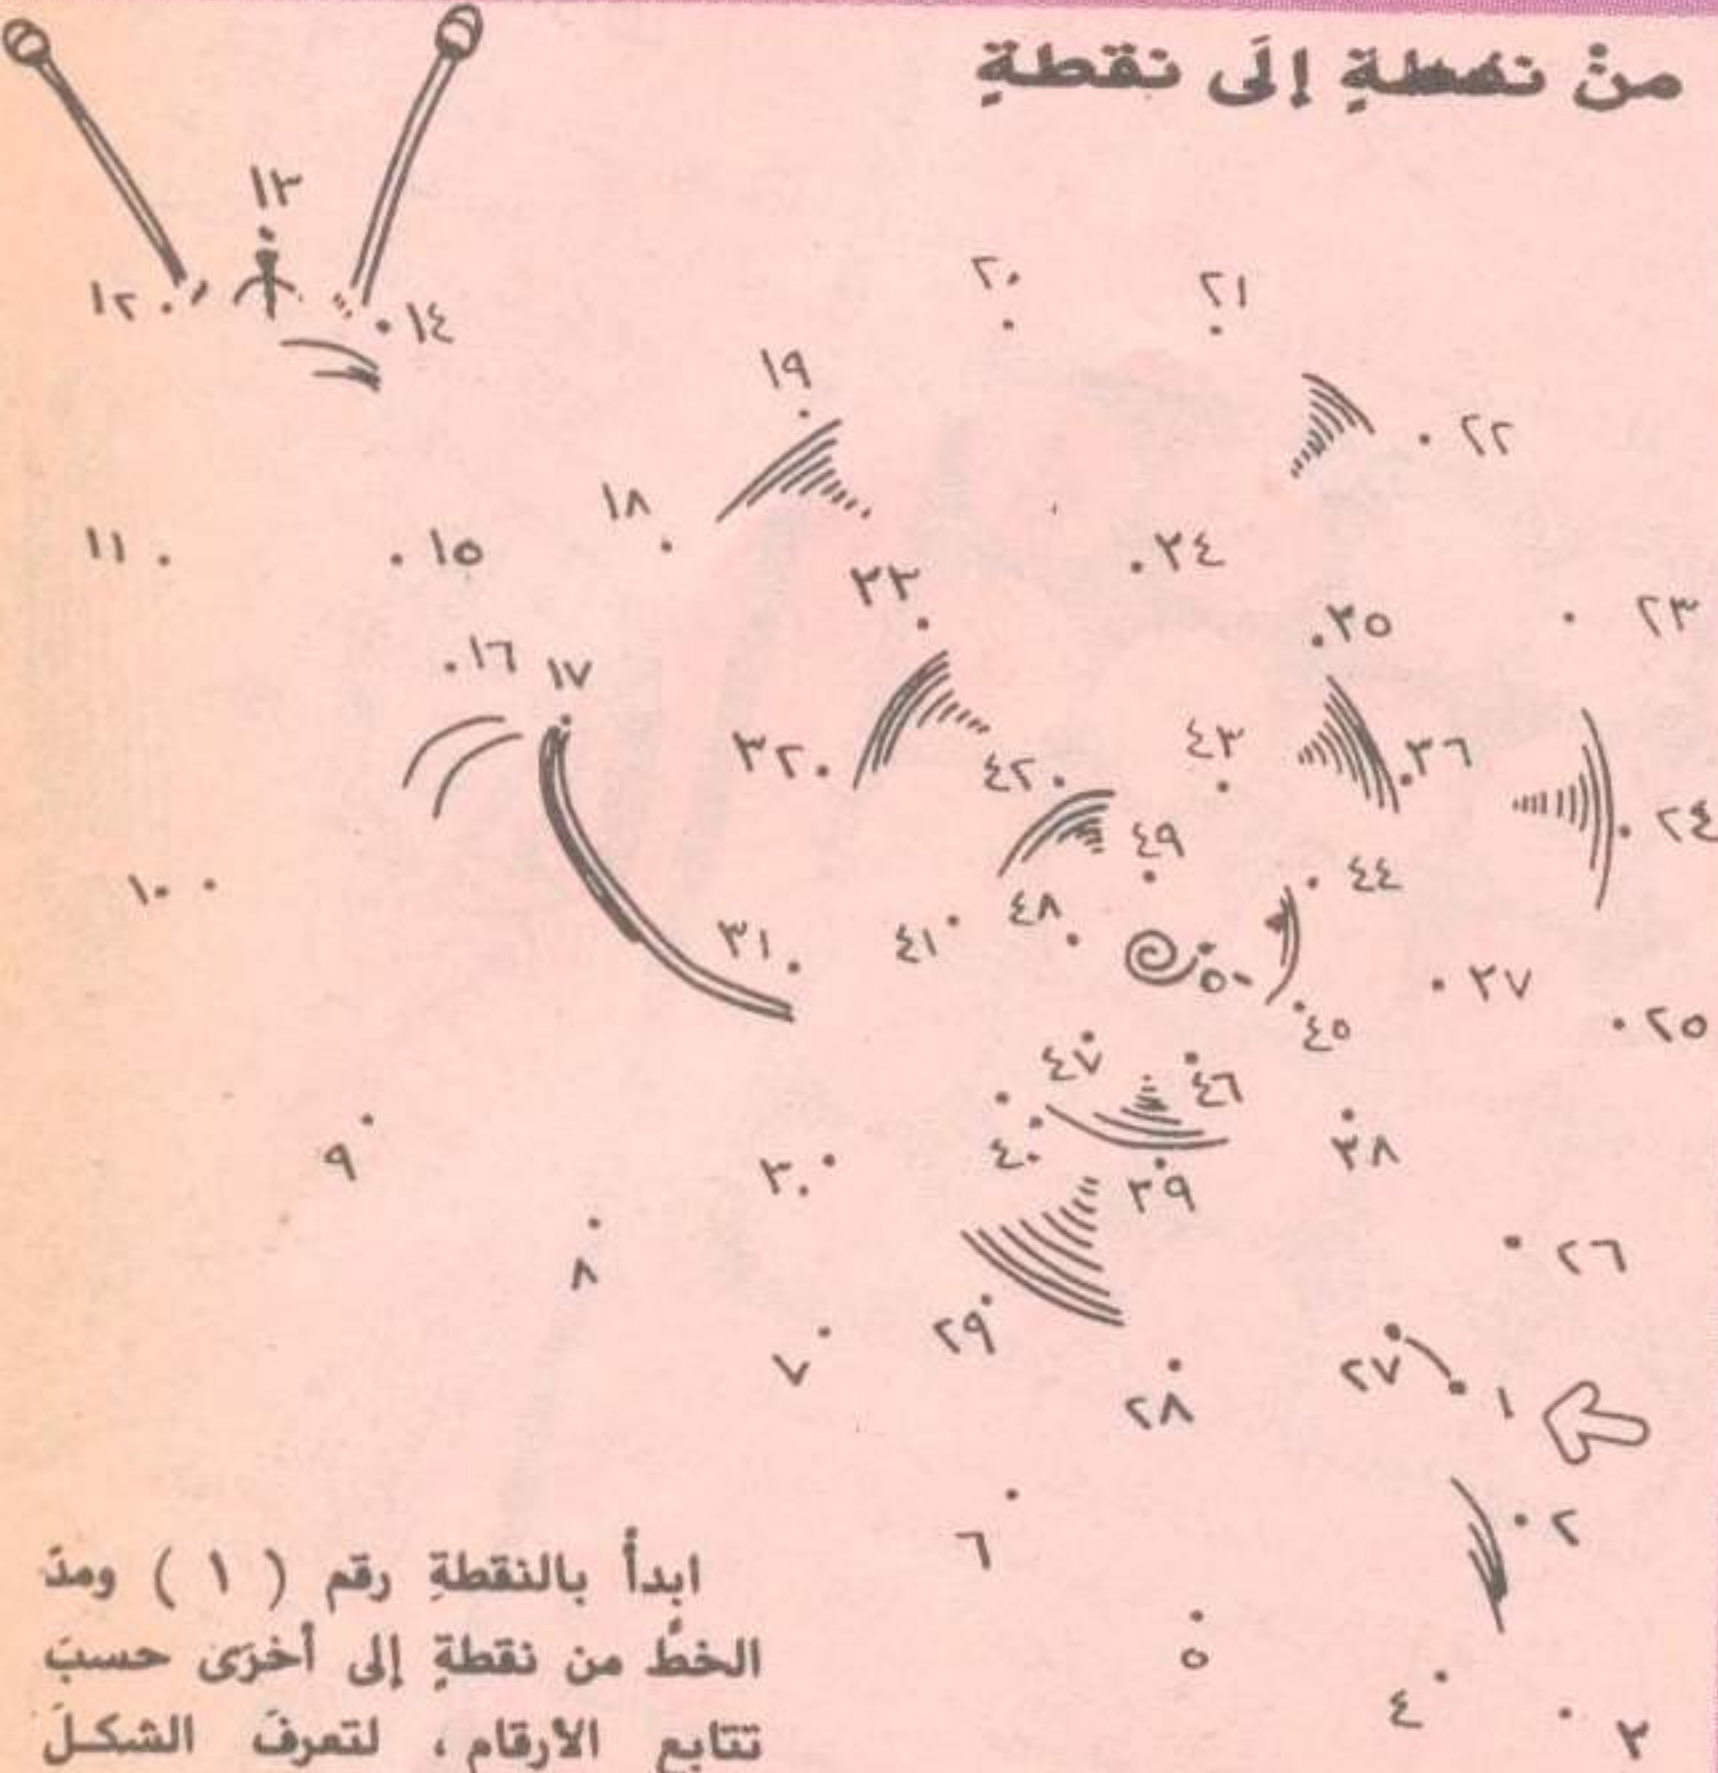 منْ نقطةٍ إلَى نقطةٍ
١٣
١٢
١٤
٢٠
٢١
١٩
٢٢
١٨
١١
١٥
٣٤
٣٣
٣٥
٢٣
١٦
١٧
٣٢
٤٢
٤٣
٣٦
٢٤
٤٩
٤٤
١٠
٣١
٤١
٤٨
٥٠
٣٧
٢٥
٤٥
٤٧
٤٦
٩
٣٠
٤٠
٣٩
٣٨
٨
٢٦
٧
٢٩
٢٨
٢٧
١
٦
٢
٥
٤
٣
ابدأْ بالنقطةِ رقم ( ١ ) ومدّ
الخطَّ من نقطةٍ إلى أخرَى حسبَ
تتابع الأرقام، لتعرفَ الشكلَ